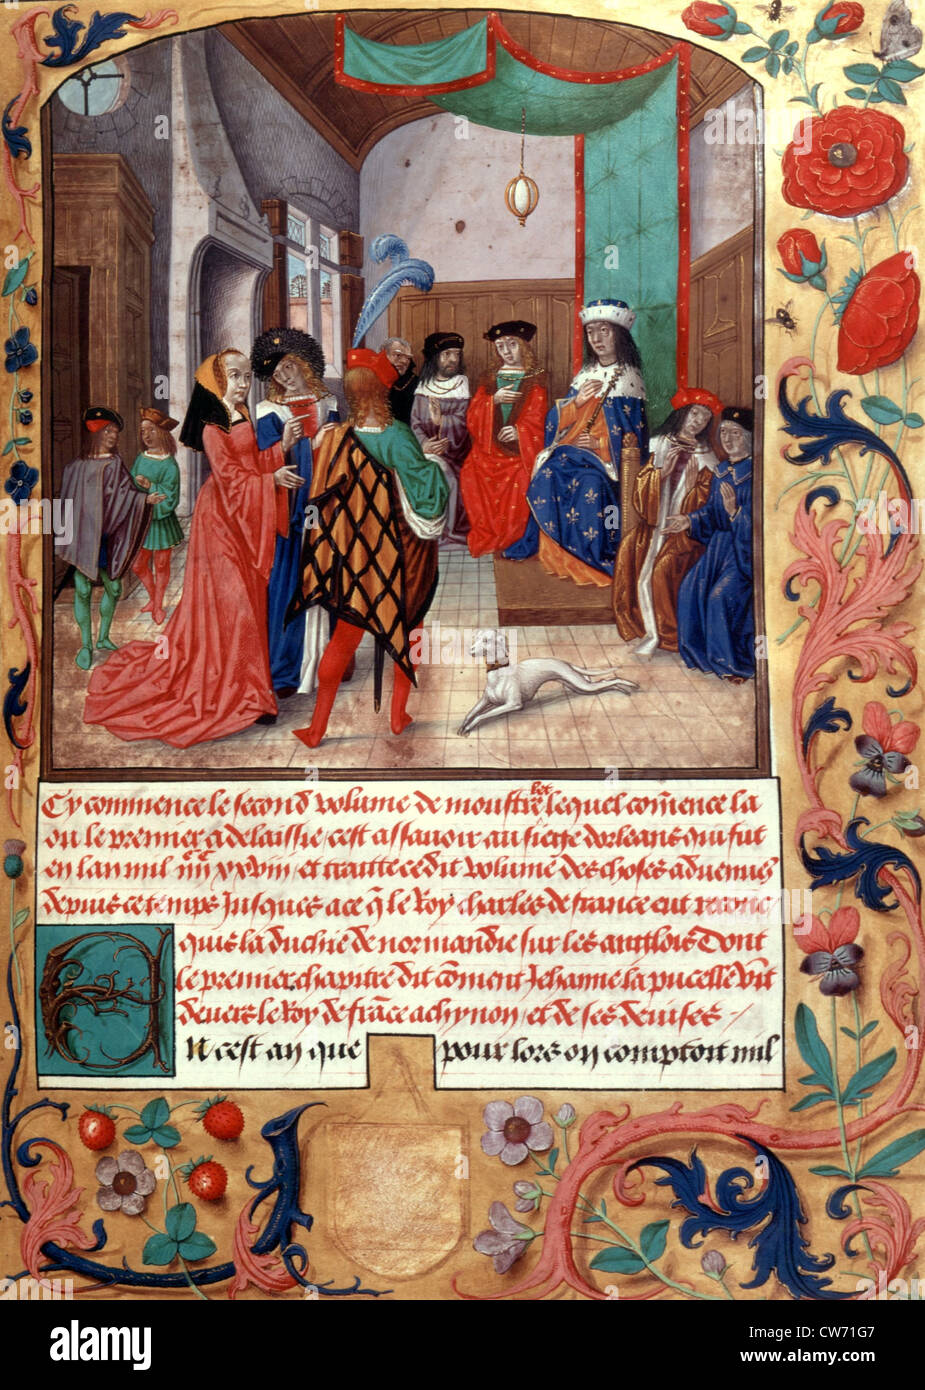 Cy commence le second volume de moustrelet lequel com̃ence la
ou le premier a delaissie cest assavoir au siege dorleans qui fut
en lan mil iiii xxviii et traitte ce dit volume des choses advenues
depuis ce temps Jusques a ce q̃ le Roy charles de france eut recon
quis la duchie de normandie sur les anglois Dont
le premier chapitre dit cõment Jehanne la pucelle vĩt
devers le Roy de frãce a chynon et de ses devises
EN cest an que pour lors on comptoit mil
alamy
Image ID: CW71G7
www.alamy.com